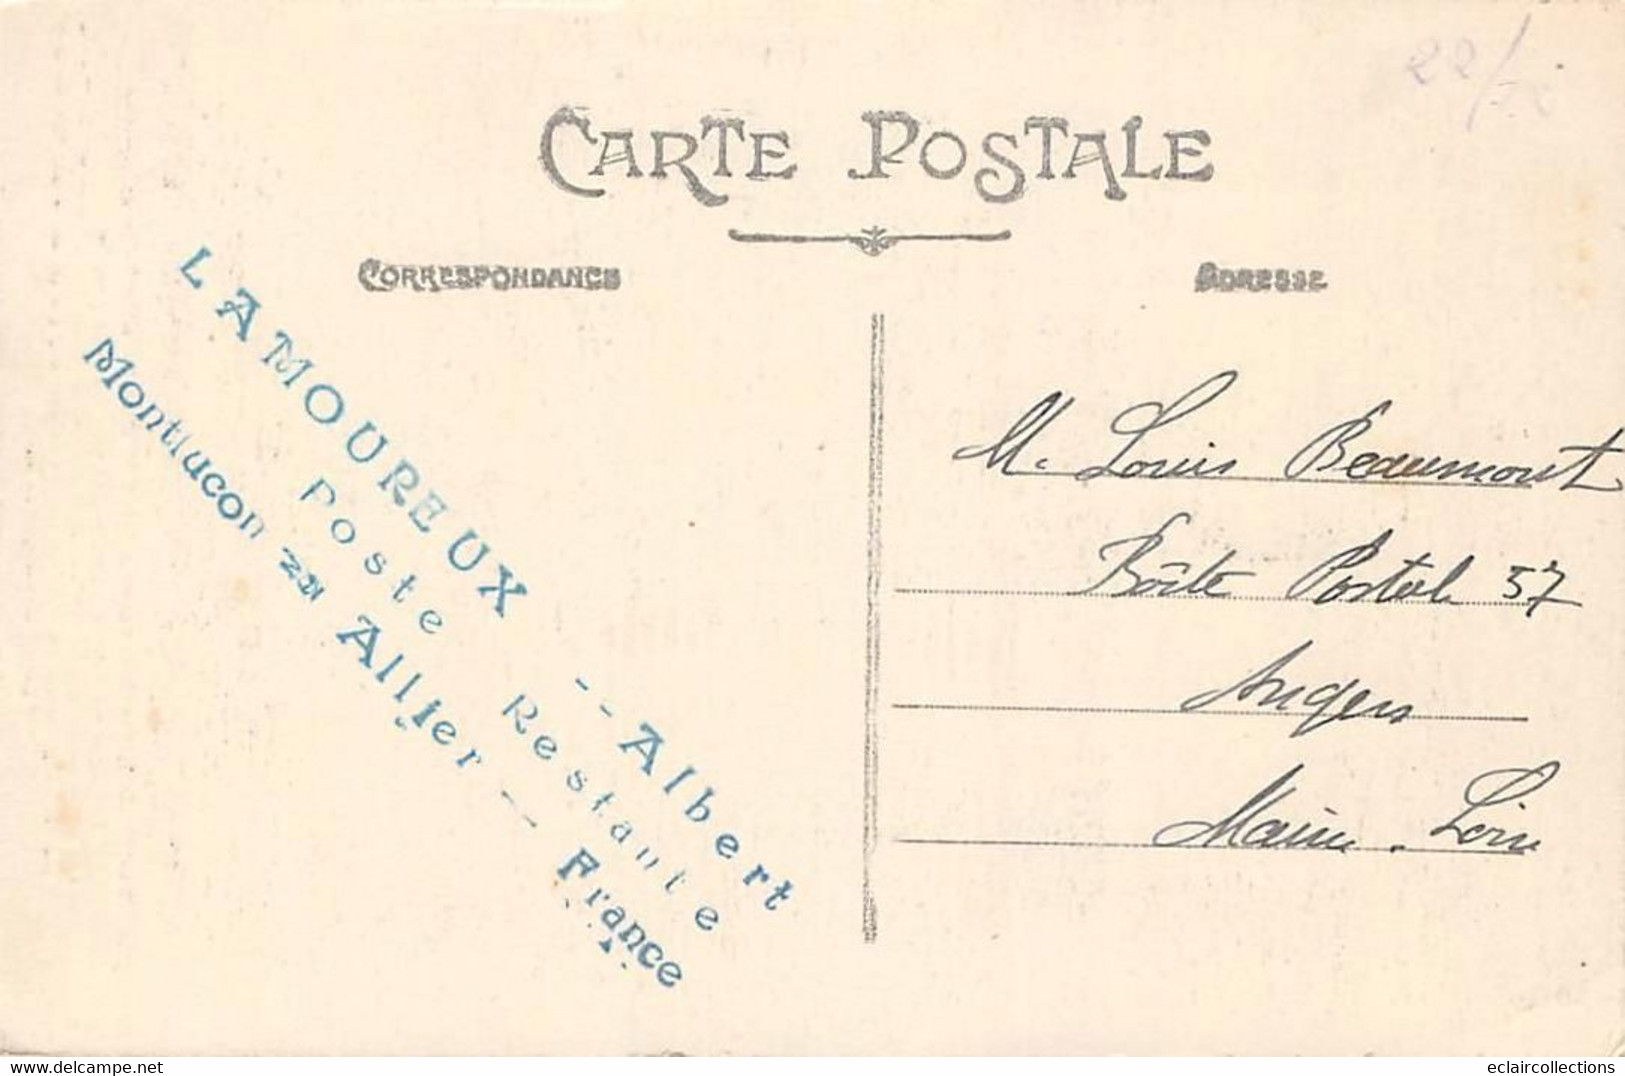 CARTE POSTALE
CORRESPONDANCE
ADRESSE
LAMOUREUX -- Albert
Poste Restante
Montluçon Allier -- France
M. Louis Beaumont
Boîte Postale 57
Angers
Maine. Loire
delcampe.net
eclaircollections